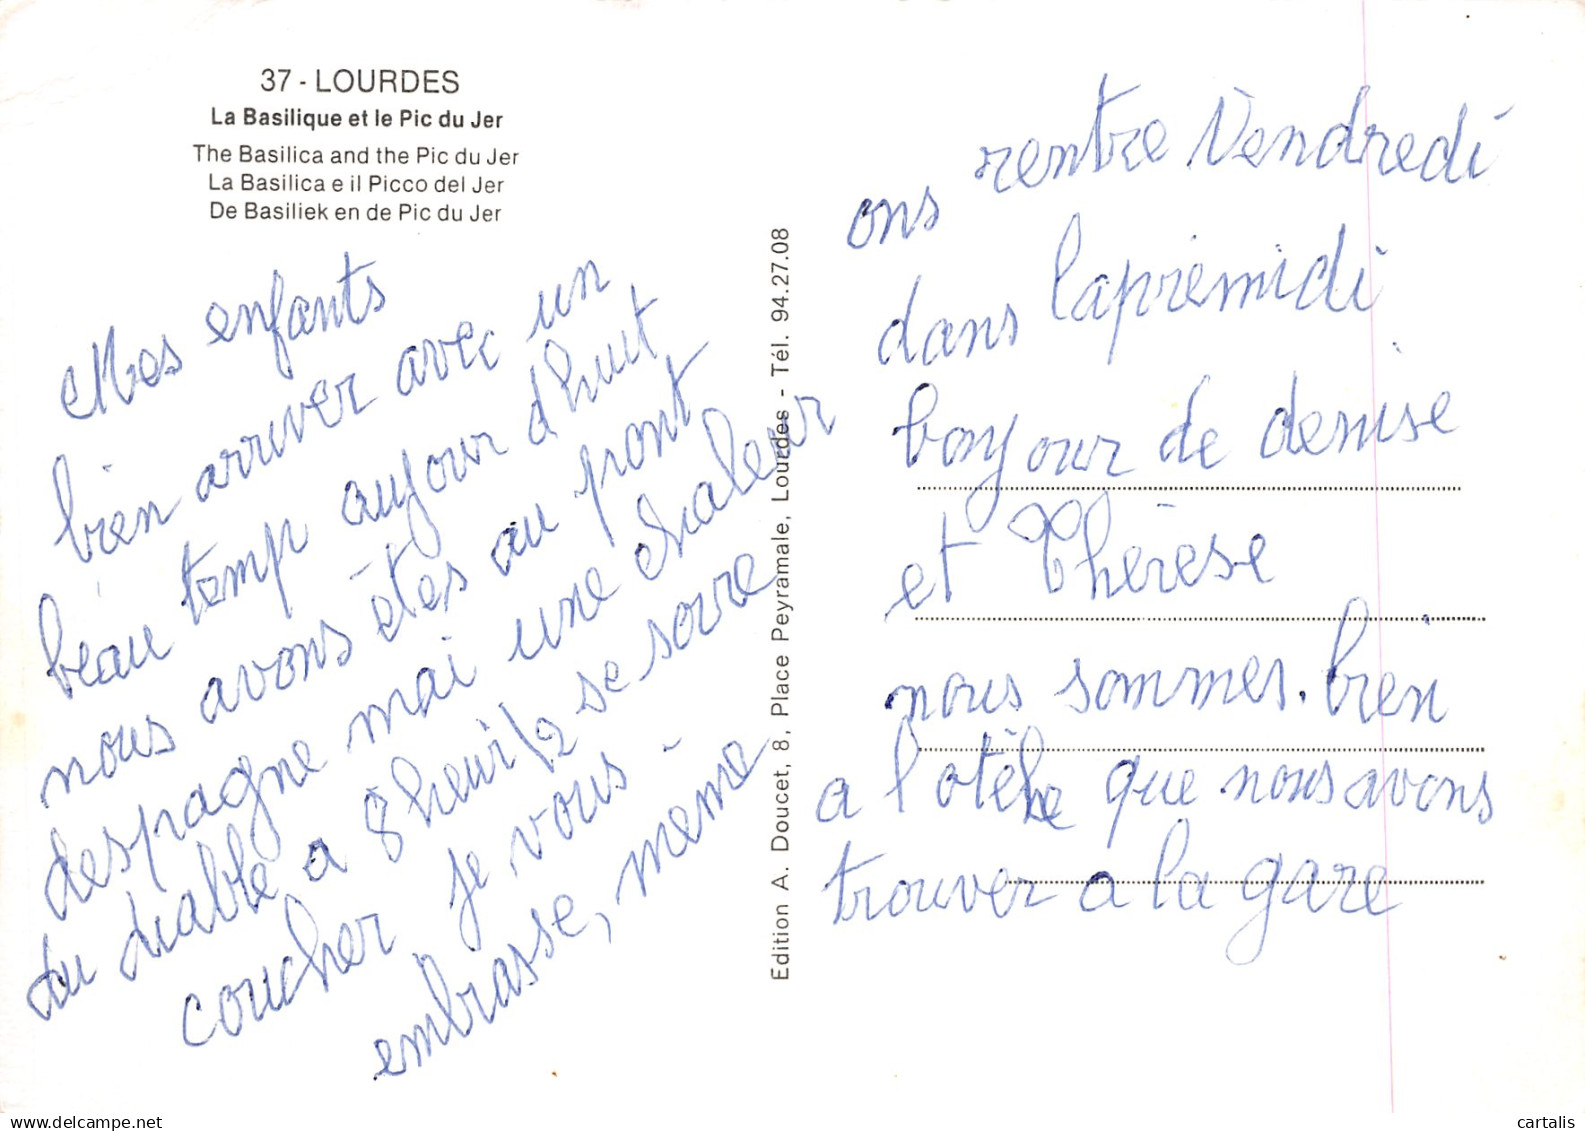 37 - LOURDES
La Basilique et le Pic du Jer
The Basilica and the Pic du Jer
La Basilica e il Picco del Jer
De Basiliek en de Pic du Jer
Mes enfants
bien arriver avec un
beau temp aujour d'huit
nous avons étés au pont
despagne mai une chaleur
du diable a 8 heur 1/2 se sovre
coucher je vous -
embrasse, meme
Edition A. Doucet, 8, Place Peyramale, Lourdes - Tél. 94.27.08
ons rentre Vendredi
dans laprèmidi
bonjour de denise
et Thérèse
nous sommes. bien
a l'otèle que nous avons
trouver a la gare
cartalis